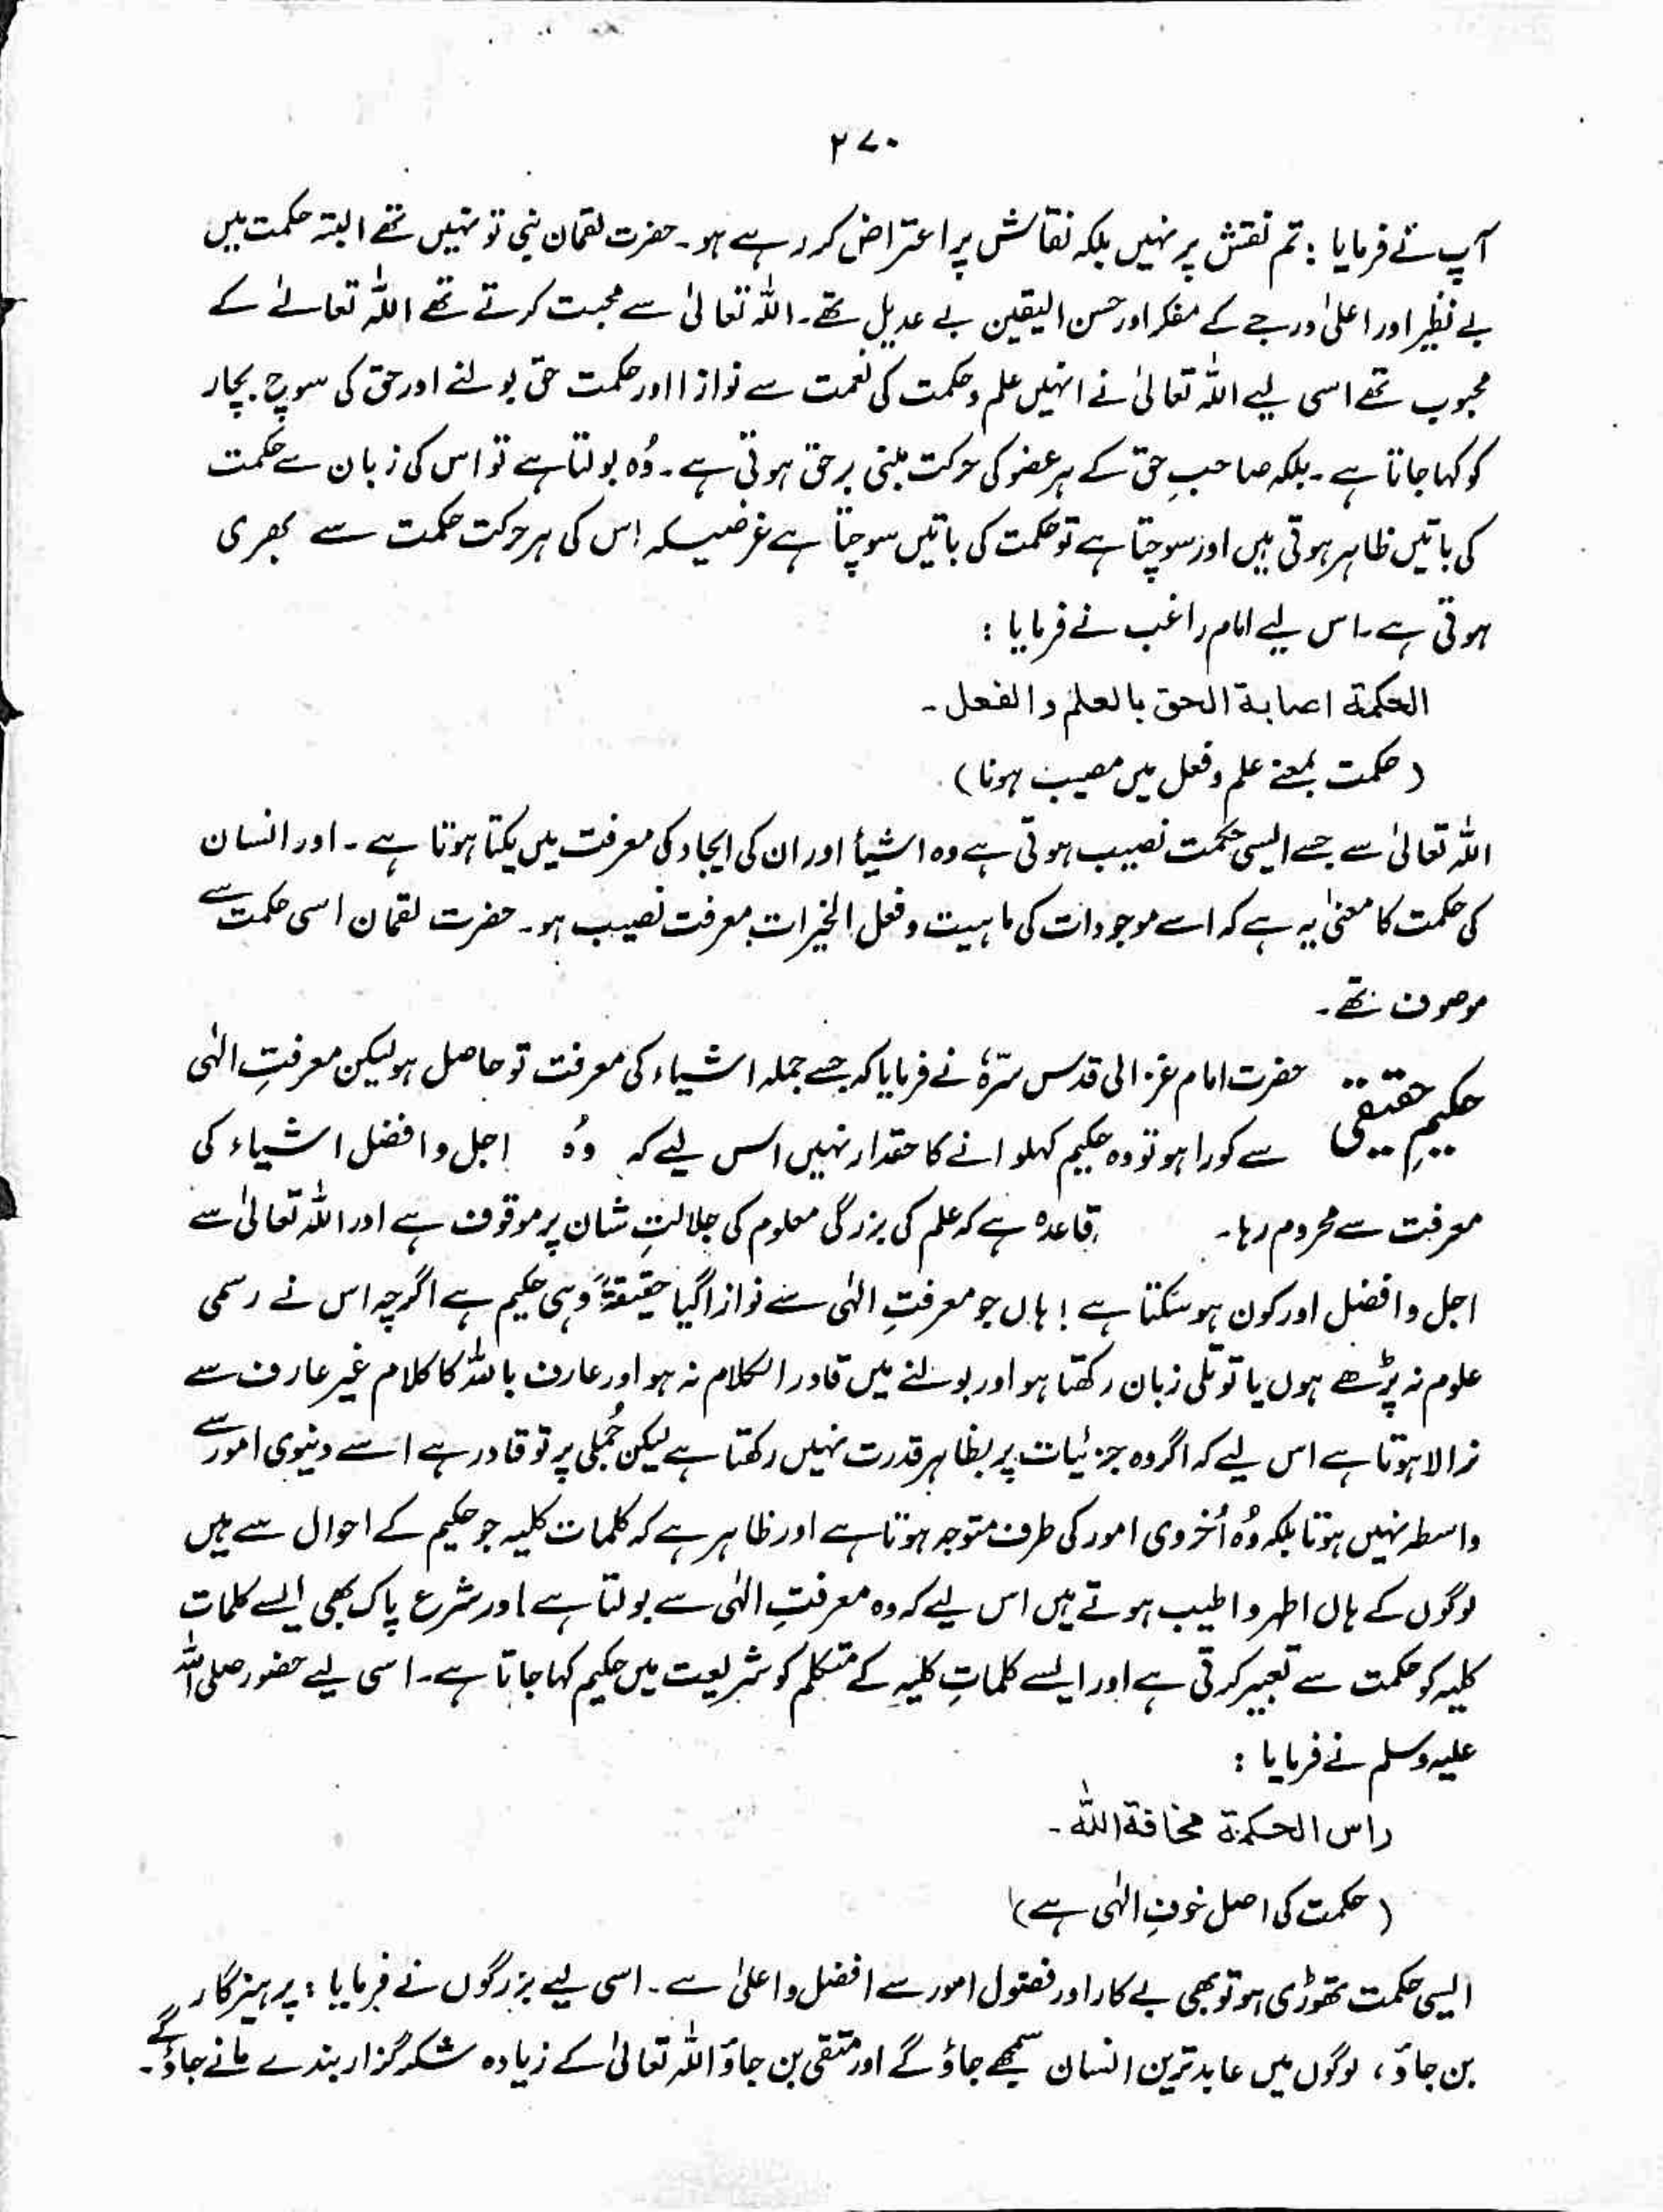 ۲۷۰
آپ نے فرمایا : تم نقش پر نہیں بلکہ نقاش پر اعتراض کر رہے ہو۔ حضرت لقمان نبی تو نہیں تھے البتہ حکمت میں
بے نظیر اور اعلیٰ درجے کے مفکر اور حسن الیقین بے عدیل تھے۔ اللہ تعالیٰ سے محبت کرتے تھے اللہ تعالےٰ کے
محبوب تھے اسی لیے اللہ تعالیٰ نے انہیں علم و حکمت کی نعمت سے نوازا اور حکمت حق بولنے اور حق کی سوچ بچار
کو کہا جاتا ہے۔ بلکہ صاحبِ حق کے ہر عضو کی حرکت مبنی بر حق ہوتی ہے۔ وُہ بولتا ہے تو اس کی زبان سے حکمت
کی باتیں ظاہر ہوتی ہیں اور سوچتا ہے تو حکمت کی باتیں سوچتا ہے غرضیکہ اس کی ہر حرکت حکمت سے بھری
ہوتی ہے۔ اس لیے امام راغب نے فرمایا :
الحکمۃ اصابۃ الحق بالعلم و الفعل۔
( حکمت بمعنے علم و فعل میں مصیب ہونا )
اللہ تعالیٰ سے جسے ایسی حکمت نصیب ہوتی ہے وہ اشیأ اور ان کی ایجاد کی معرفت میں یکتا ہوتا ہے۔ اور انسان
کی حکمت کا معنیٰ یہ ہے کہ اسے موجودات کی ماہیت و فعل الخیرات معرفت نصیب ہو۔ حضرت لقمان اسی حکمت سے
موصوف تھے۔
حکیمِ حقیقی حضرت امام غزالی قدس سرّہٗ نے فرمایا کہ جسے جملہ اشیاء کی معرفت تو حاصل ہو لیکن معرفتِ الٰہی
سے کورا ہو تو وہ حکیم کہلوانے کا حقدار نہیں اس لیے کہ وُہ اجل و افضل اشیاء کی
معرفت سے محروم رہا۔ قاعدہ ہے کہ علم کی بزرگی معلوم کی جلالتِ شان پر موقوف ہے اور اللہ تعالیٰ سے
اجل و افضل اور کون ہو سکتا ہے ! ہاں جو معرفتِ الٰہی سے نوازا گیا حقیقۃً وہی حکیم ہے اگرچہ اس نے رسمی
علوم نہ پڑھے ہوں یا توتلی زبان رکھتا ہو اور بولنے میں قادر الکلام نہ ہو اور عارف باللہ کا کلام غیر عارف سے
نرالا ہوتا ہے اس لیے کہ اگر وہ جزئیات پر بظاہر قدرت نہیں رکھتا ہے لیکن جُملی پر تو قادر ہے اسے دنیوی امور سے
واسطہ نہیں ہوتا بلکہ وُہ اُخروی امور کی طرف متوجہ ہوتا ہے اور ظاہر ہے کہ کلمات کلیہ جو حکیم کے احوال سے ہیں
لوگوں کے ہاں اطہر و اطیب ہوتے ہیں اس لیے کہ وہ معرفتِ الٰہی سے بولتا ہے اور شرع پاک بھی ایسے کلمات
کلیہ کو حکمت سے تعبیر کرتی ہے اور ایسے کلماتِ کلیہ کے متکلم کو شریعت میں حکیم کہا جاتا ہے۔ اسی لیے حضور صلی اللہ
علیہ وسلم نے فرمایا :
راس الحکمۃ مخافۃ اللہ۔
( حکمت کی اصل خوفِ الٰہی ہے )
ایسی حکمت تھوڑی ہو تو بھی بے کار اور فضول امور سے افضل و اعلیٰ ہے۔ اسی لیے بزرگوں نے فرمایا : پرہیزگار
بن جاؤ ، لوگوں میں عابد ترین انسان سمجھے جاؤ گے اور متقی بن جاؤ اللہ تعالیٰ کے زیادہ شکر گزار بندے مانے جاؤ گے۔